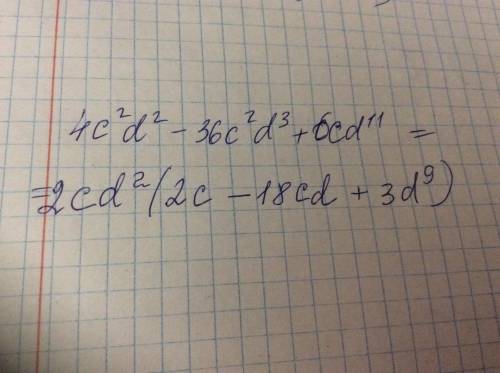 4c²d² - 36c²d³ + 6cd¹¹ =
= 2cd²(2c - 18cd + 3d⁹)